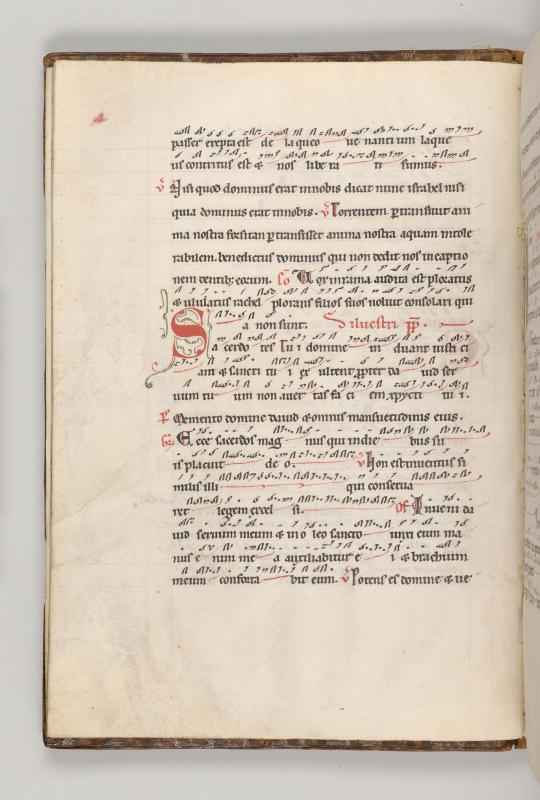 passer erepta est de laqueo ve nantium laque
us contritus est & nos libera ti sumus.
V Nisi quod dominus erat in nobis dicat nunc israhel nisi
quia dominus erat in nobis. V Torrentem ptransiuit ani
ma nostra forsitan ptransisset anima nostra aquam intole
rabilem. benedictus dominus qui non dedit nos in captio
nem dentib; eorum. Co Vox in rama audita est ploratus
& ululatus rachel plorans filios suos noluit consolari qui
a non sunt. Siluestri pp.
Sa cerdo tes tu i domine in duant iusti ci
am & sancti tu i ex ultent. propter da uid ser
uum tu um non auer tas fa ci em xpycti tu i.
P Memento domine dauid & omnis mansuetudinis eius.
Gr Ecce sacerdos mag nus qui in die bus su
is placuit de o. V Non est inuentus si
milis illi qui conserua
ret legem excel si. Of Inueni da
uid seruum meum & in o leo sancto unxi eum ma
nus e nim me a auxiliabitur e i & brachium
meum conforta bit eum. V Potens es domine & ue